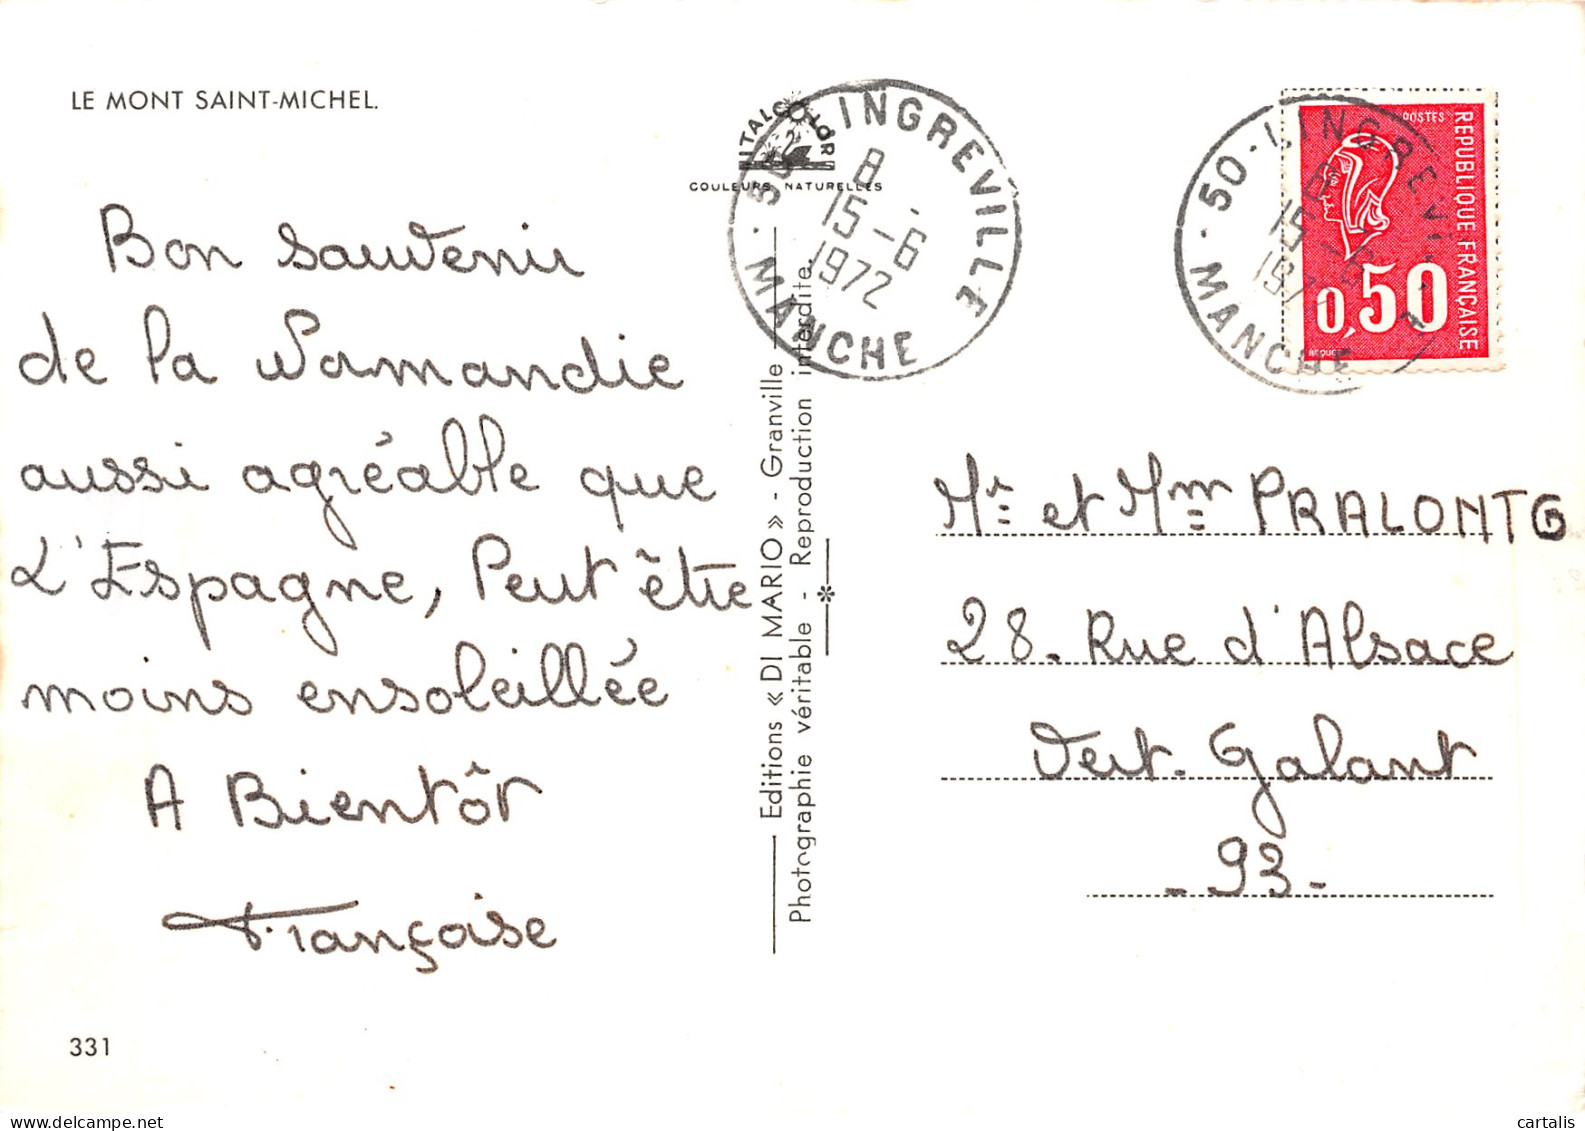 LE MONT SAINT-MICHEL.
Bon souvenir
de la Normandie
aussi agréable que
L'Espagne, Peut être
moins ensoleillée
A Bientôt
Françoise
331
ITALCOLOR
COULEURS NATURELLES
Editions « DI MARIO » - Granville
Photographie véritable - Reproduction interdite.
50 - LINGREVILLE
8
15 - 6
1972
MANCHE
50 - LINGREVILLE
8
15 - 6
197
MANCHE
POSTES
REPUBLIQUE FRANÇAISE
0,50
BEQUET
Mr et Mm PRALONTG
28. Rue d'Alsace
Vert. Galant
- 93 -
cartalis